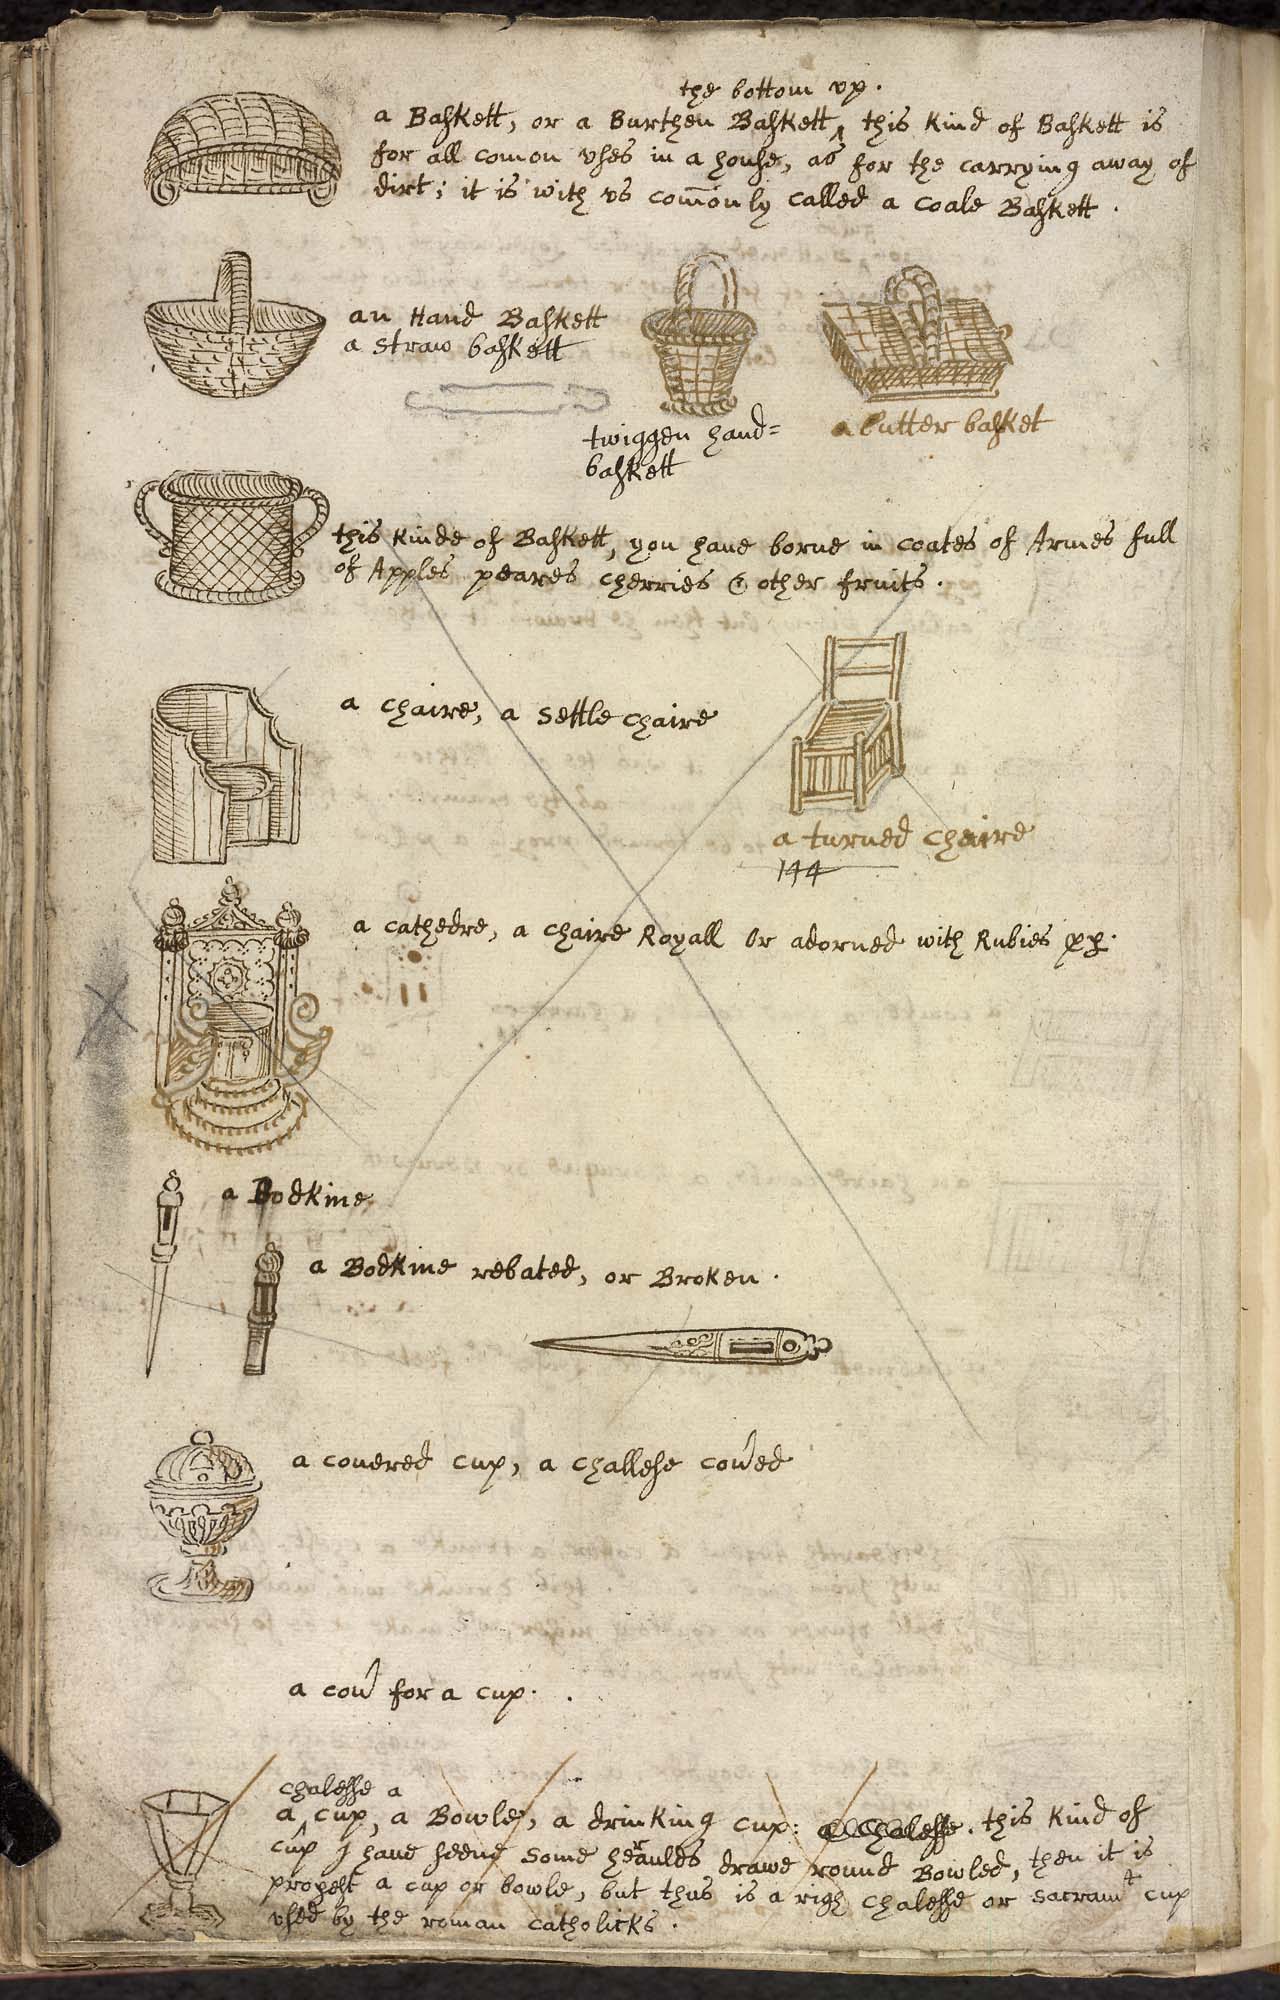 the bottom up.
a Baskett, or a Burthen Baskett, this kind of Baskett is
for all comon uses in a house, as for the carrying away of
dirt; it is with us com̄only called a Coale Baskett.
an Hand Baskett
a straw baskett
twiggen hand=
baskett
a butter basket
this kinde of Baskett, you have borne in coates of Armes full
of Apples peares cherries & other fruits.
a chaire, a settle chaire
a turned chaire
144
a cathedre, a chaire Royall or adorned with Rubies
a Bodkine
a Bodkine rebated, or Broken.
a covered cup, a challese cov̓ed
a cov̓ for a cup.
chalesse a
a cup, a Bowle, a drinking cup: a chalesse. this kind of
cup I have seene some heraulds drawe round Bowled, then it is
propest a cup or bowle, but thus is a righ chalesse or sacramᵗ cup
used by the roman catholicks.